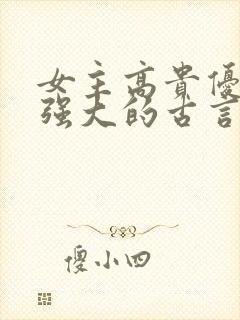 女主高貴優
強大的古言
傻小四